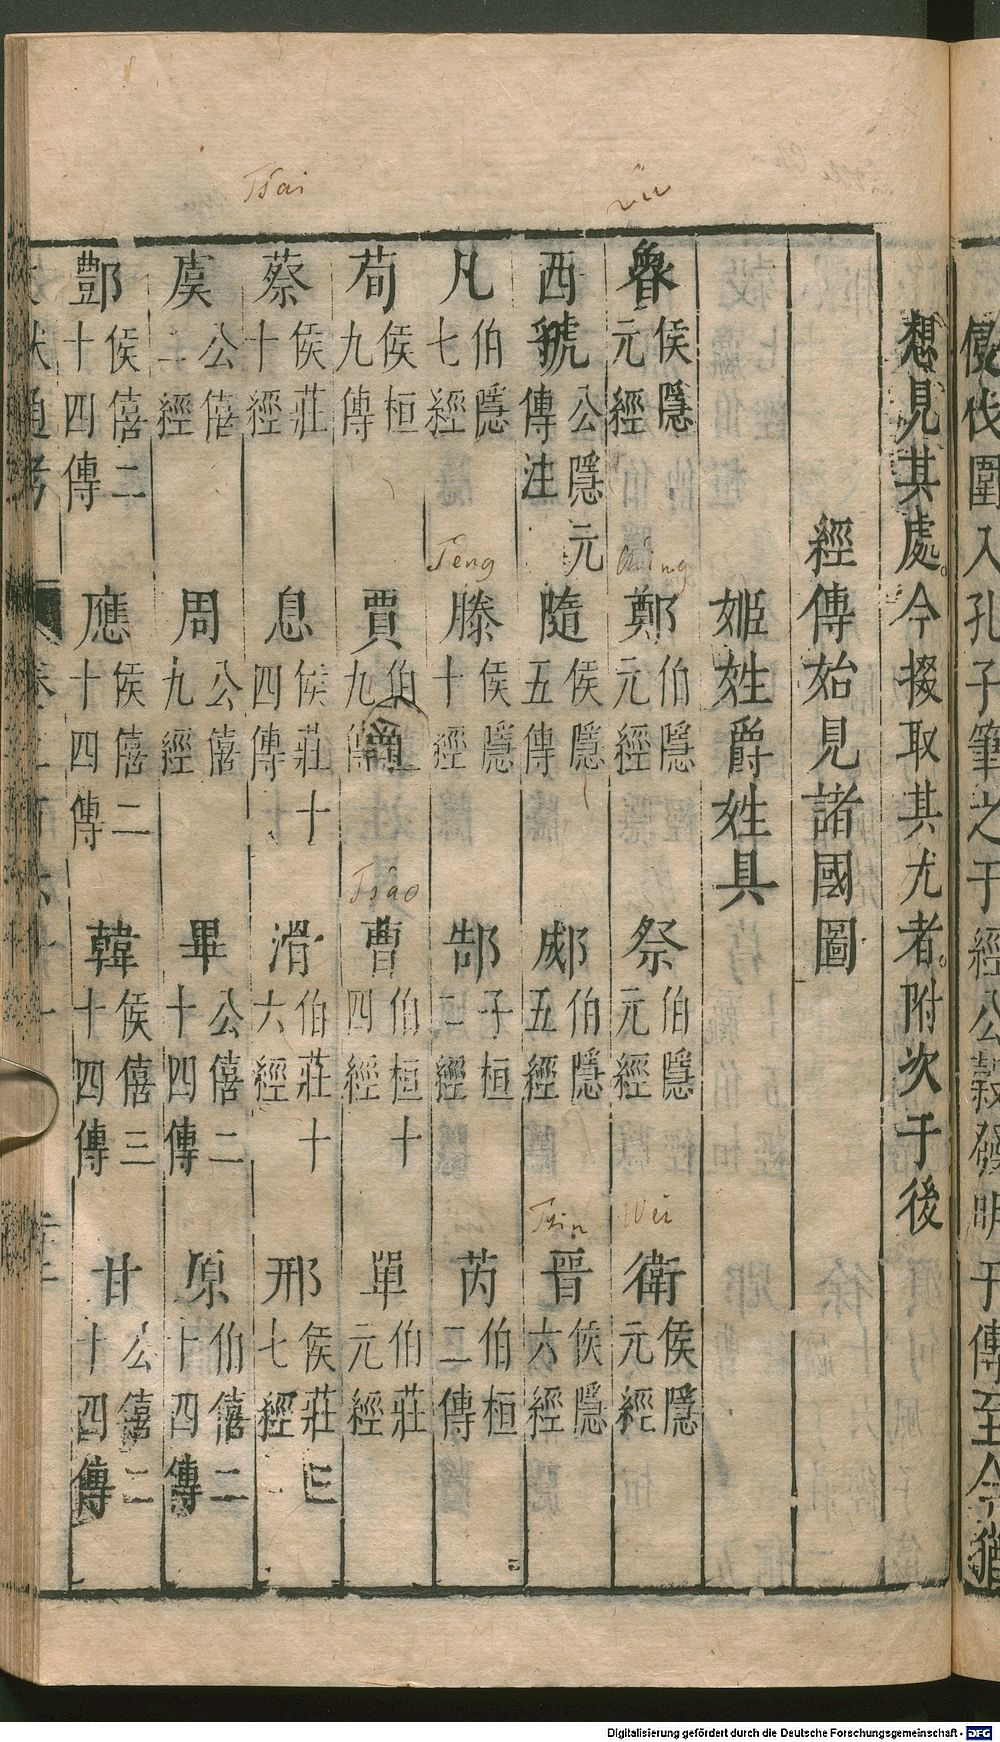 儍伐圍入孔子筆之于經公穀發明于傳至今猶
想見其處。今掇取其尤者。附次于後
經傳始見諸國圖
姬姓爵姓具
魯 侯隱元經 鄭 伯隱元經 祭 伯隱元經 衛 侯隱元經
西虢 公隱元傳注 隨 侯隱五傳 郕 伯隱五經 晉 侯隱六經
凡 伯隱七經 滕 侯隱十經 郜 子桓二經 芮 伯桓二傳
荀 侯桓九傳 賈 伯九 曹 伯桓十四經 單 伯莊元經
蔡 侯莊十經 息 侯莊十四傳 滑 伯莊十六經 邢 侯莊三七經
虞 公僖二經 周 公僖九經 畢 公僖二十四傳 原 伯僖二十四傳
酆 侯僖二十四傳 應 侯僖二十四傳 韓 侯僖三十四傳 甘 公僖二十四傳
通考
Tsai
Lu
Teng
Ching
Tsao
Tsin
Wei
Digitalisierung gefördert durch die Deutsche Forschungsgemeinschaft - DFG